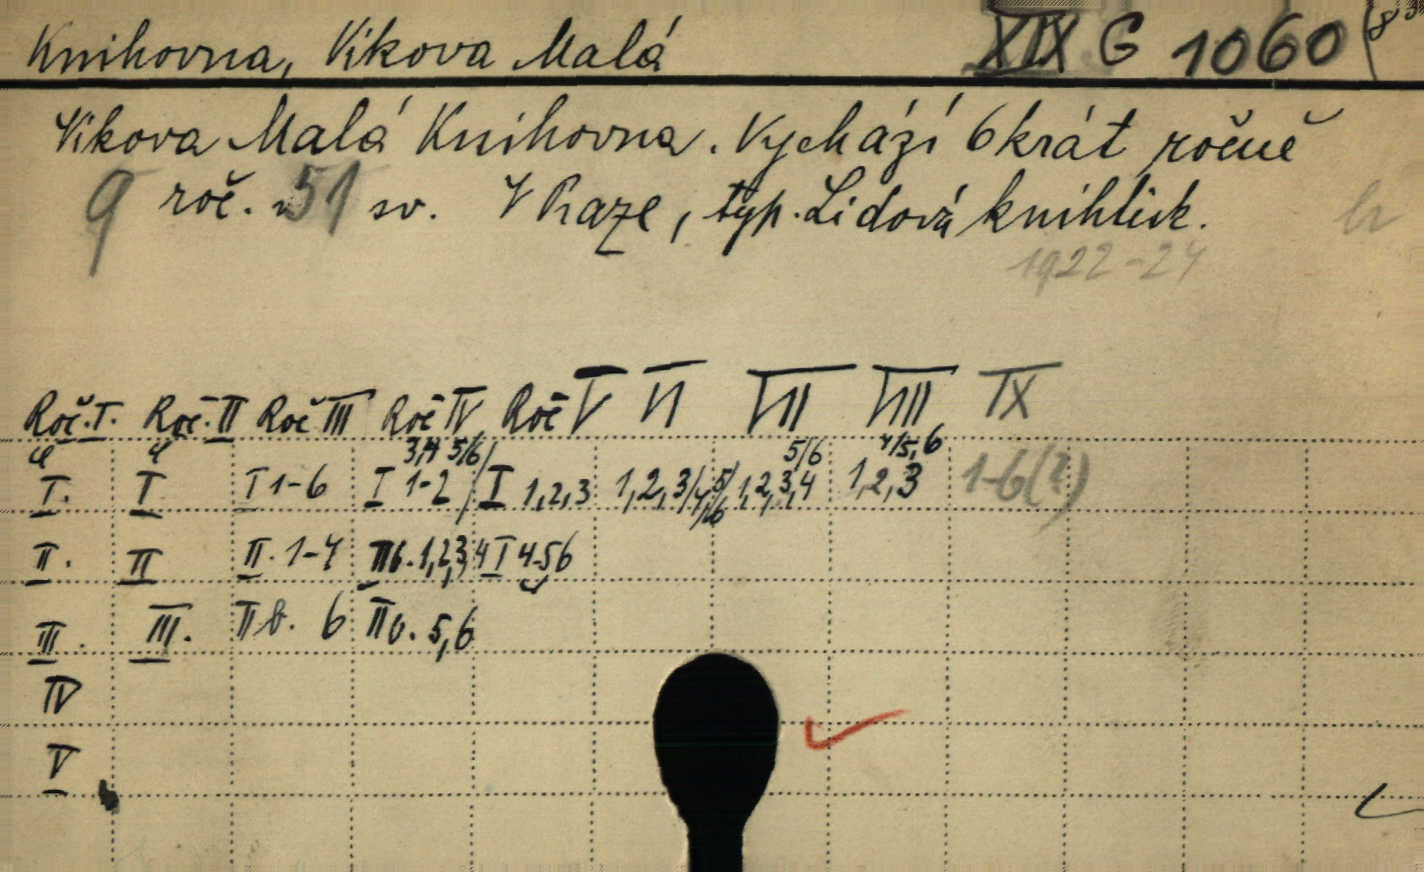 Knihovna, Vikova Malá XIX G 1060
Vikova Malá Knihovna. Vychází 6krát ročně
9 roč. 51 sv. V Praze, typ. Lidová knihtisk.
1922-24
Roč. I. Roč. II Roč III Roč IV Roč V VI VII VIII IX
3,4 5/6 5/6 4/5,6
I. I I 1-6 I 1-2 I 1,2,3 1,2,3 1,2,3,4 1,2,3 1-6(?)
II. II II. 1-4 IIb. 1,2,3,4 I 4-56
III. III. IIb. 6 IIb. 5,6
IV
V